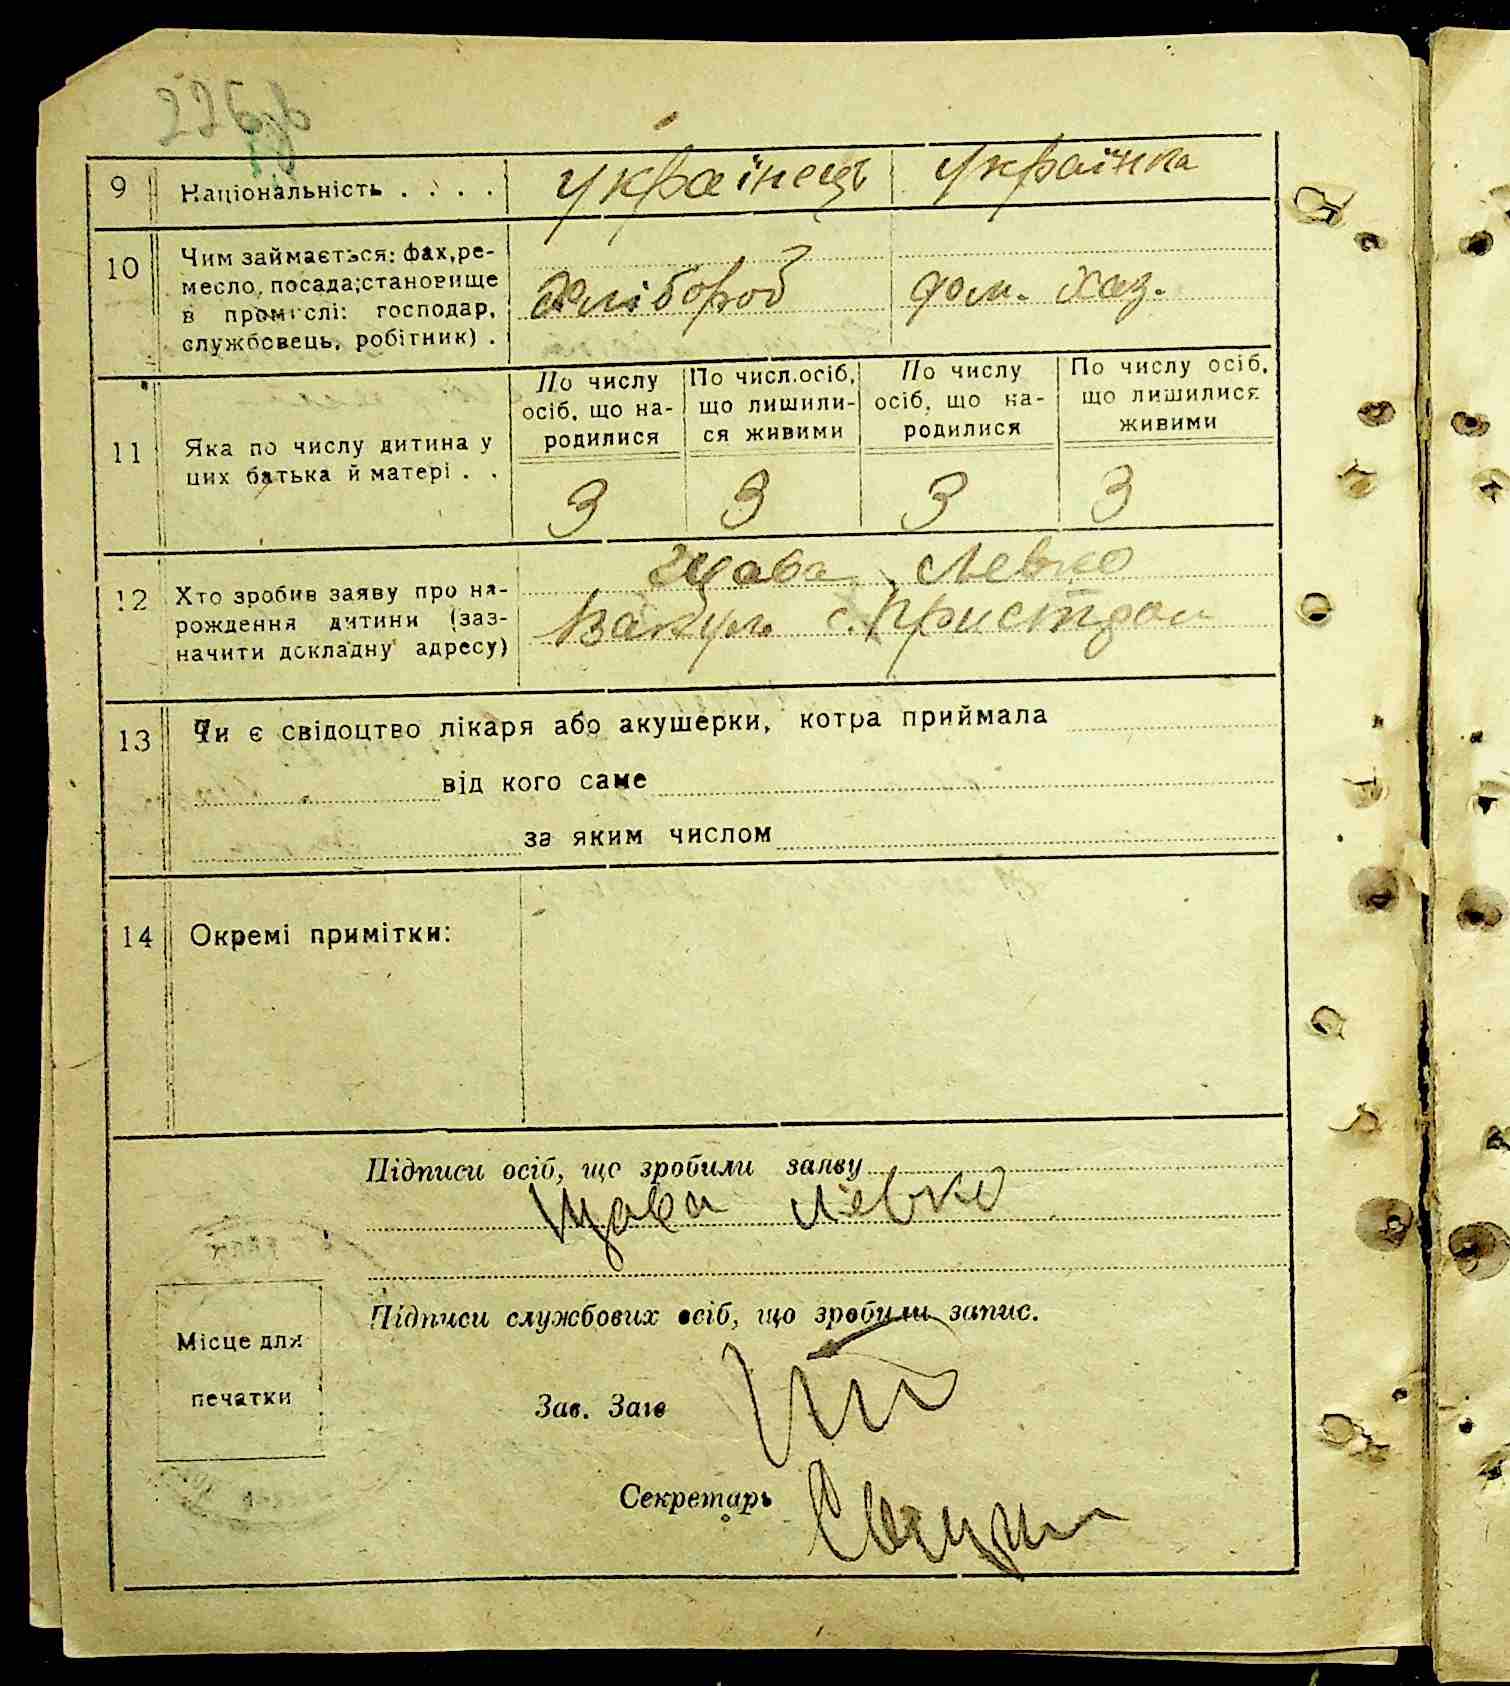 226
9 Національність . . . . українець українка
10 Чим займається: фах, ре-
месло, посада; становище
в промислі: господар,
службовець, робітник) .
Хлібороб дом. хаз.
11 Яка по числу дитина у
цих батька й матері . .
По числу
осіб, що на-
родилися
По числ. осіб,
що лишили-
ся живими
По числу
осіб, що на-
родилися
По числу осіб,
що лишилися
живими
3 3 3 3
12 Хто зробив заяву про на-
рождення дитини (заз-
начити докладну адресу)
Щава Левко
Вакул. с. Пристром
13 Чи є свідоцтво лікаря або акушерки, котра приймала
від кого саме
за яким числом
14 Окремі примітки:
Підписи осіб, що зробили заяву
Щава Левко
Підписи службових осіб, що зробили запис.
Місце для
печатки
Зав. Заго
Секретарь